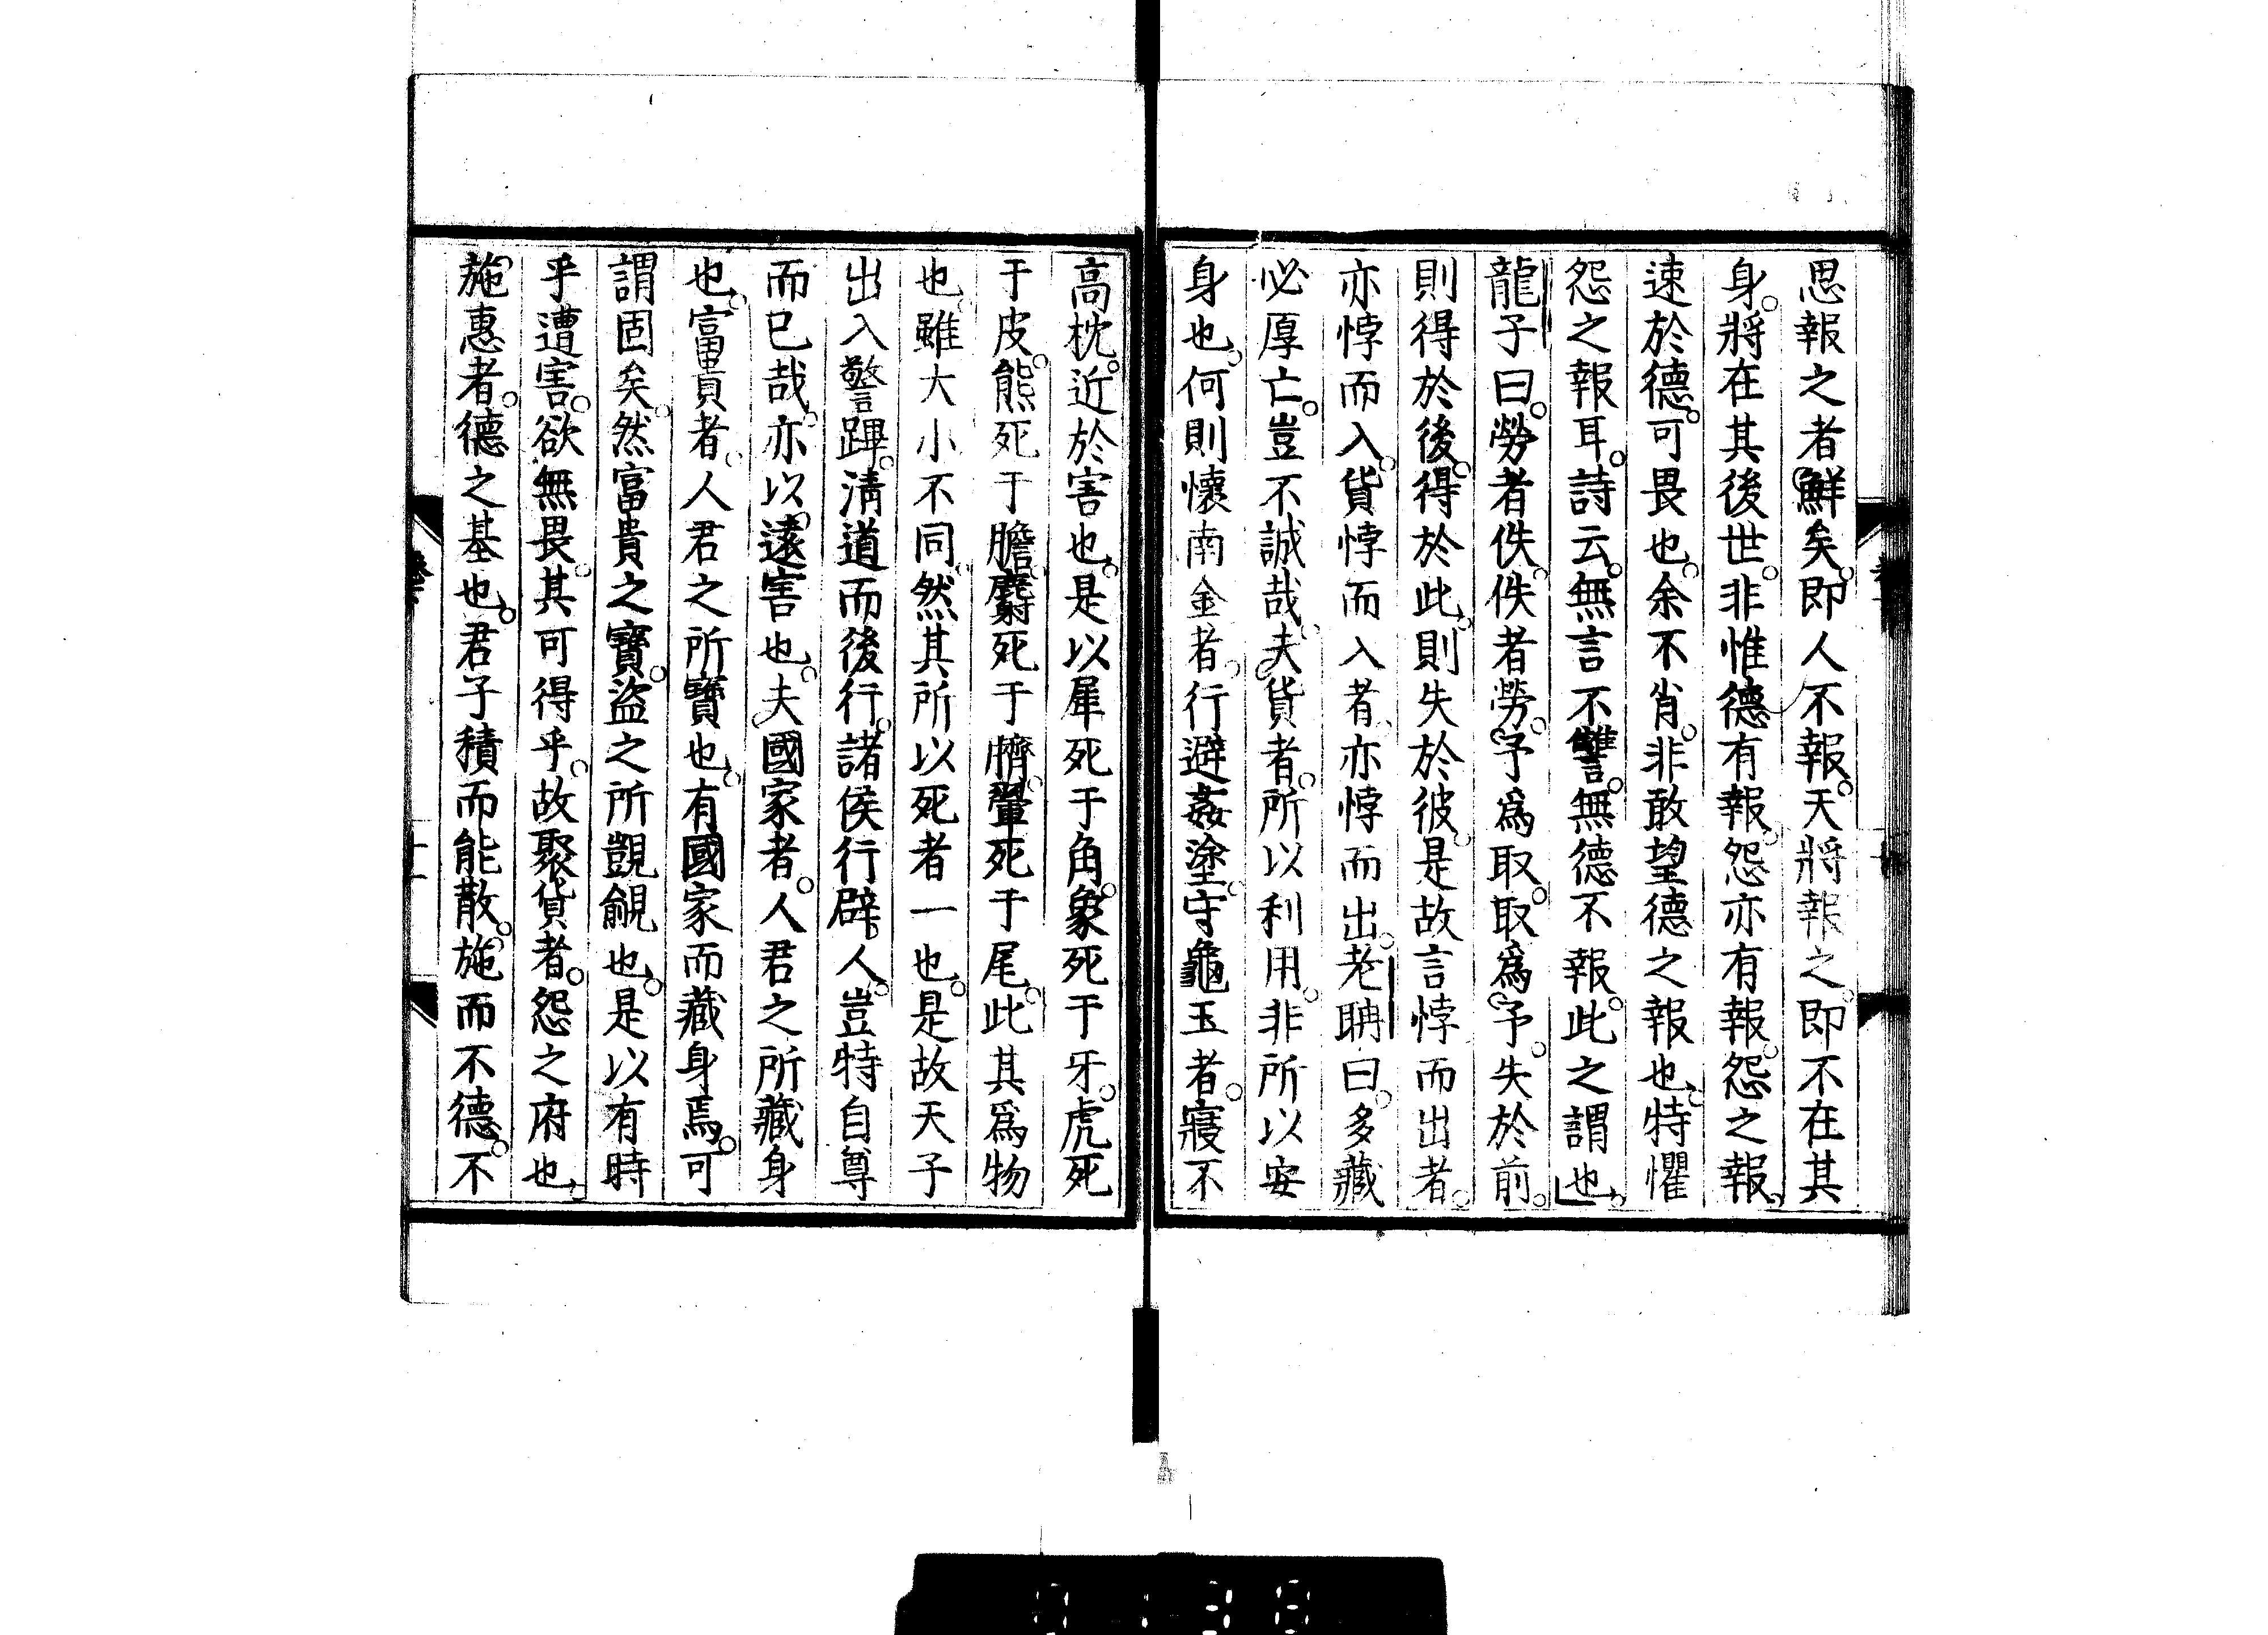 思報之者鮮矣。即人不報。天將報之。即不在其
身。將在其後世。非惟德有報。怨亦有報。怨之報。
速於德。可畏也。余不肖。非敢望德之報也。特懼
怨之報耳。詩云。無言不讐。無德不報。此之謂也。
龍子曰。勞者佚。佚者勞。予爲取。取爲予。失於前。
則得於後。得於此。則失於彼。是故言悖而出者。
亦悖而入。貨悖而入者。亦悖而出。老聃曰。多藏
必厚亡。豈不誠哉。夫貨者。所以利用。非所以安
身也。何則懷南金者。行避姦塗。守龜玉者。寢不
高枕。近於害也。是以犀死于角。象死于牙。虎死
于皮。熊死于膽。麝死于臍。翬死于尾。此其爲物
也。雖大小不同。然其所以死者一也。是故天子
出入警蹕。清道而後行。諸侯行辟人。豈特自尊
而已哉。亦以遠害也。夫國家者。人君之所藏身
也。富貴者。人君之所寶也。有國家而藏身焉。可
謂固矣。然富貴之寶。盜之所覬覦也。是以有時
乎遭害。欲無畏。其可得乎。故聚貨者。怨之府也。
施惠者。德之基也。君子積而能散。施而不德。不